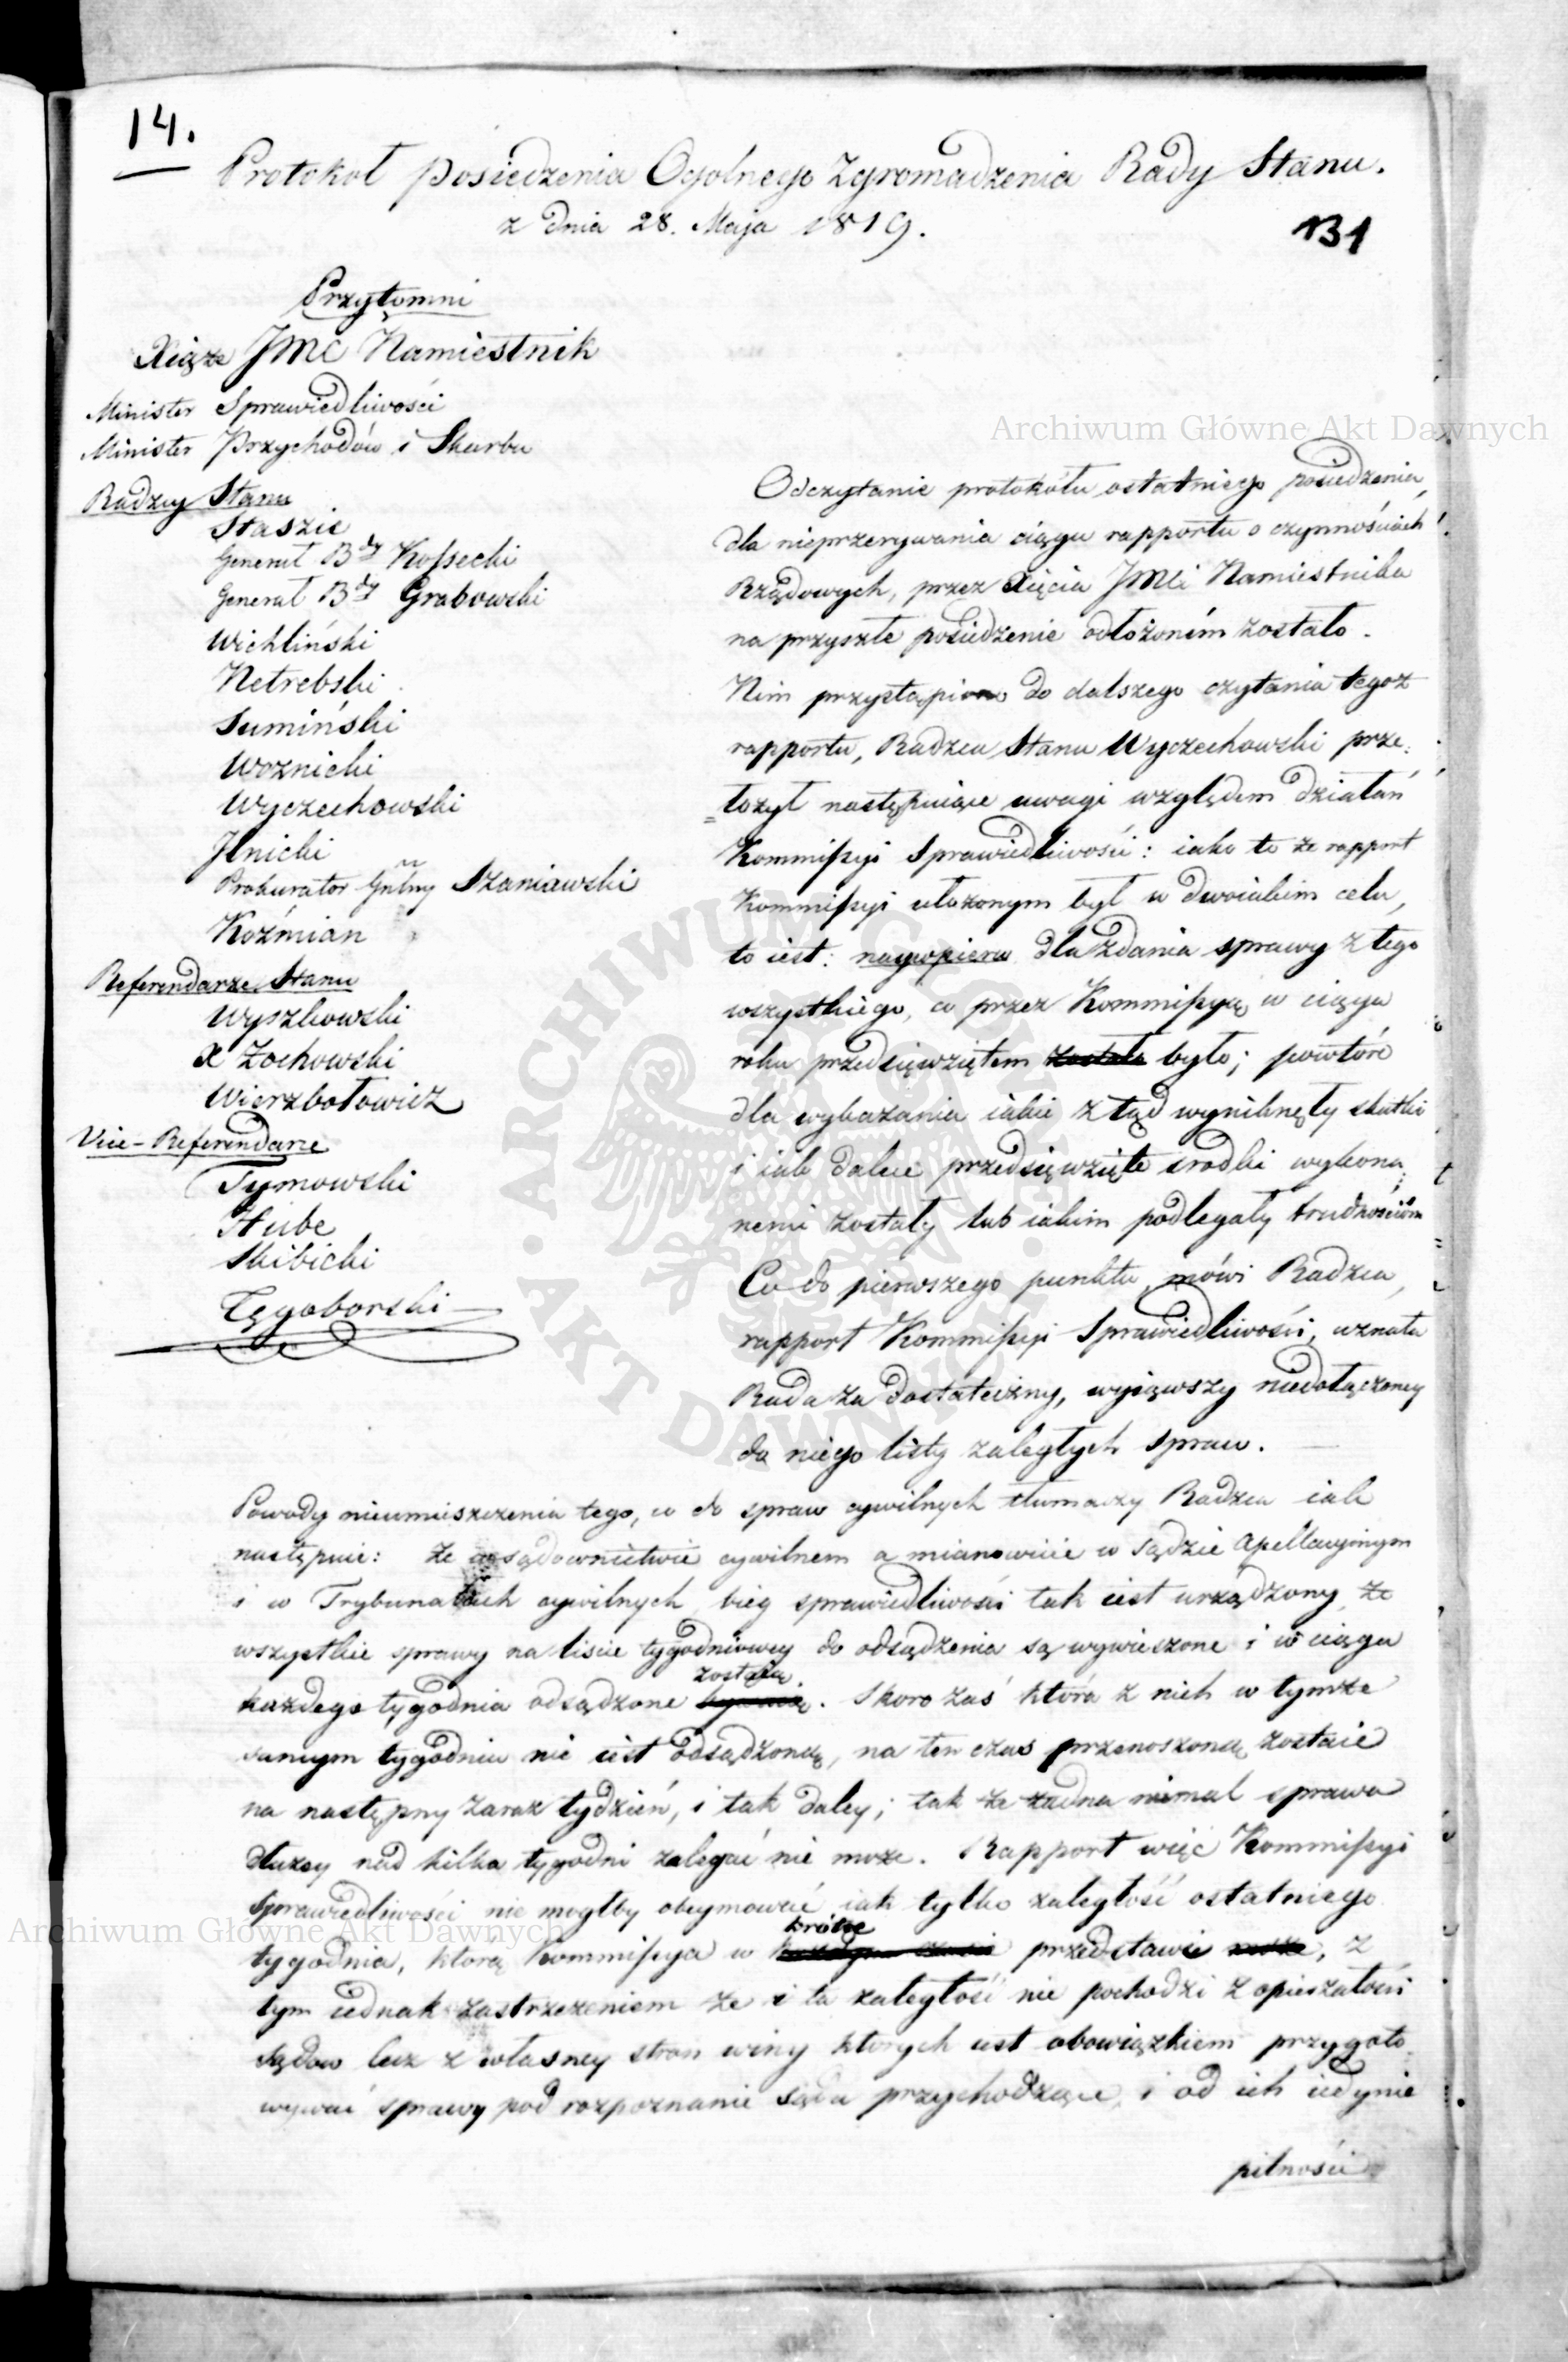 14.
Protokoł posiedzenia Ogolnego Zgromadzenia Rady Stanu.
z dnia 28. Maja 1819.
131
Przytomni
Xiąże JMC Namiestnik
Minister Sprawiedliwości
Minister Przychodów i Skarbu
Radzcy Stanu
Staszic
Generał Bdy Kossecki
Generał Bdy Grabowski
Wichliński
Netrebski
Sumiński
Woznicki
Wyczechowski
Jlnicki
Prokurator Gnlny Szaniawski
Koźmian
Referendarze Stanu
Wyszkowski
X Zochowski
Wierzbołowicz
Vice-Referendarze
Tymowski
Hube
Skibicki
Tęgoborski
Odczytanie protokołu ostatniego posiedzenia,
dla nieprzerywania ciągu rapportu o czynnościach
Rządowych, przez Xięcia JMCi Namiestnika
na przyszłe posiedzenie odłożoném zostało.
Nim przystąpiono do dalszego czytania tegoż
rapportu, Radzca Stanu Wyczechowski prze:
=łożył następuiące uwagi względem działań
Kommissyi Sprawiedliwości: iako to że rapport
Kommissyi ułożonym był w dwoiakim celu,
to iest: naypopierw dla zdania sprawy z tego
wszystkiego, co przez Kommissyą w ciągu
roku przedsięwziętem zostało było; powtóre
dla wykazania iakie z tąd wyniknęły skutki
i iak dalece przedsięwzięte srodki wykona:
nemi zostały lub iakim podlegały trudnościom
Co do pierwszego punktu, mówi Radzca,
rapport Kommissyi Sprawiedliwości, uznała
Rada za dostateczny, wyiąwszy niedołączoney
do niego listy zaległych spraw.
Powody nieumieszczenia tego, co do spraw cywilnych tłumaczy Radzca iak
następuie: że w sądownictwie cywilnem a mianowicie w Sądzie Apellacyinym
i w Trybunałach cywilnych bieg sprawiedliwości tak iest urządzony, że
wszystkie sprawy na liscie tygodniowey do odsądzenia są wywieszone i w ciągu
zostaią
każdego tygodnia odsądzone bywaią. Skoro zaś która z nich w tymże
samym tygodniu nie iest odsądzoną, na ten czas przenoszoną zostaie
na następny zaraz tydzień, i tak daley; tak że żadna niemal sprawa
dłużey nad kilka tygodni zalegać nie może. Rapport więc Kommissyi
Sprawiedliwości nie mogłby obeymować iak tylko zaległość ostatniego
krótce
tygodnia, ktorą Kommissya w każdym czasie przedstawi może, z
tym iednak zastrzeżeniem że i ta zaległość nie pochodzi z opieszałości
Sądow lecz z własney stron winy ktorych iest obowiązkiem przygoto
wywać sprawy pod rozpoznanie Sądu przychodzące, i od ich iedynie
pilności
Archiwum Główne Akt Dawnych
Archiwum Główne Akt Dawnych
ARCHIWUM GŁÓWNE · AKT DAWNYCH ·